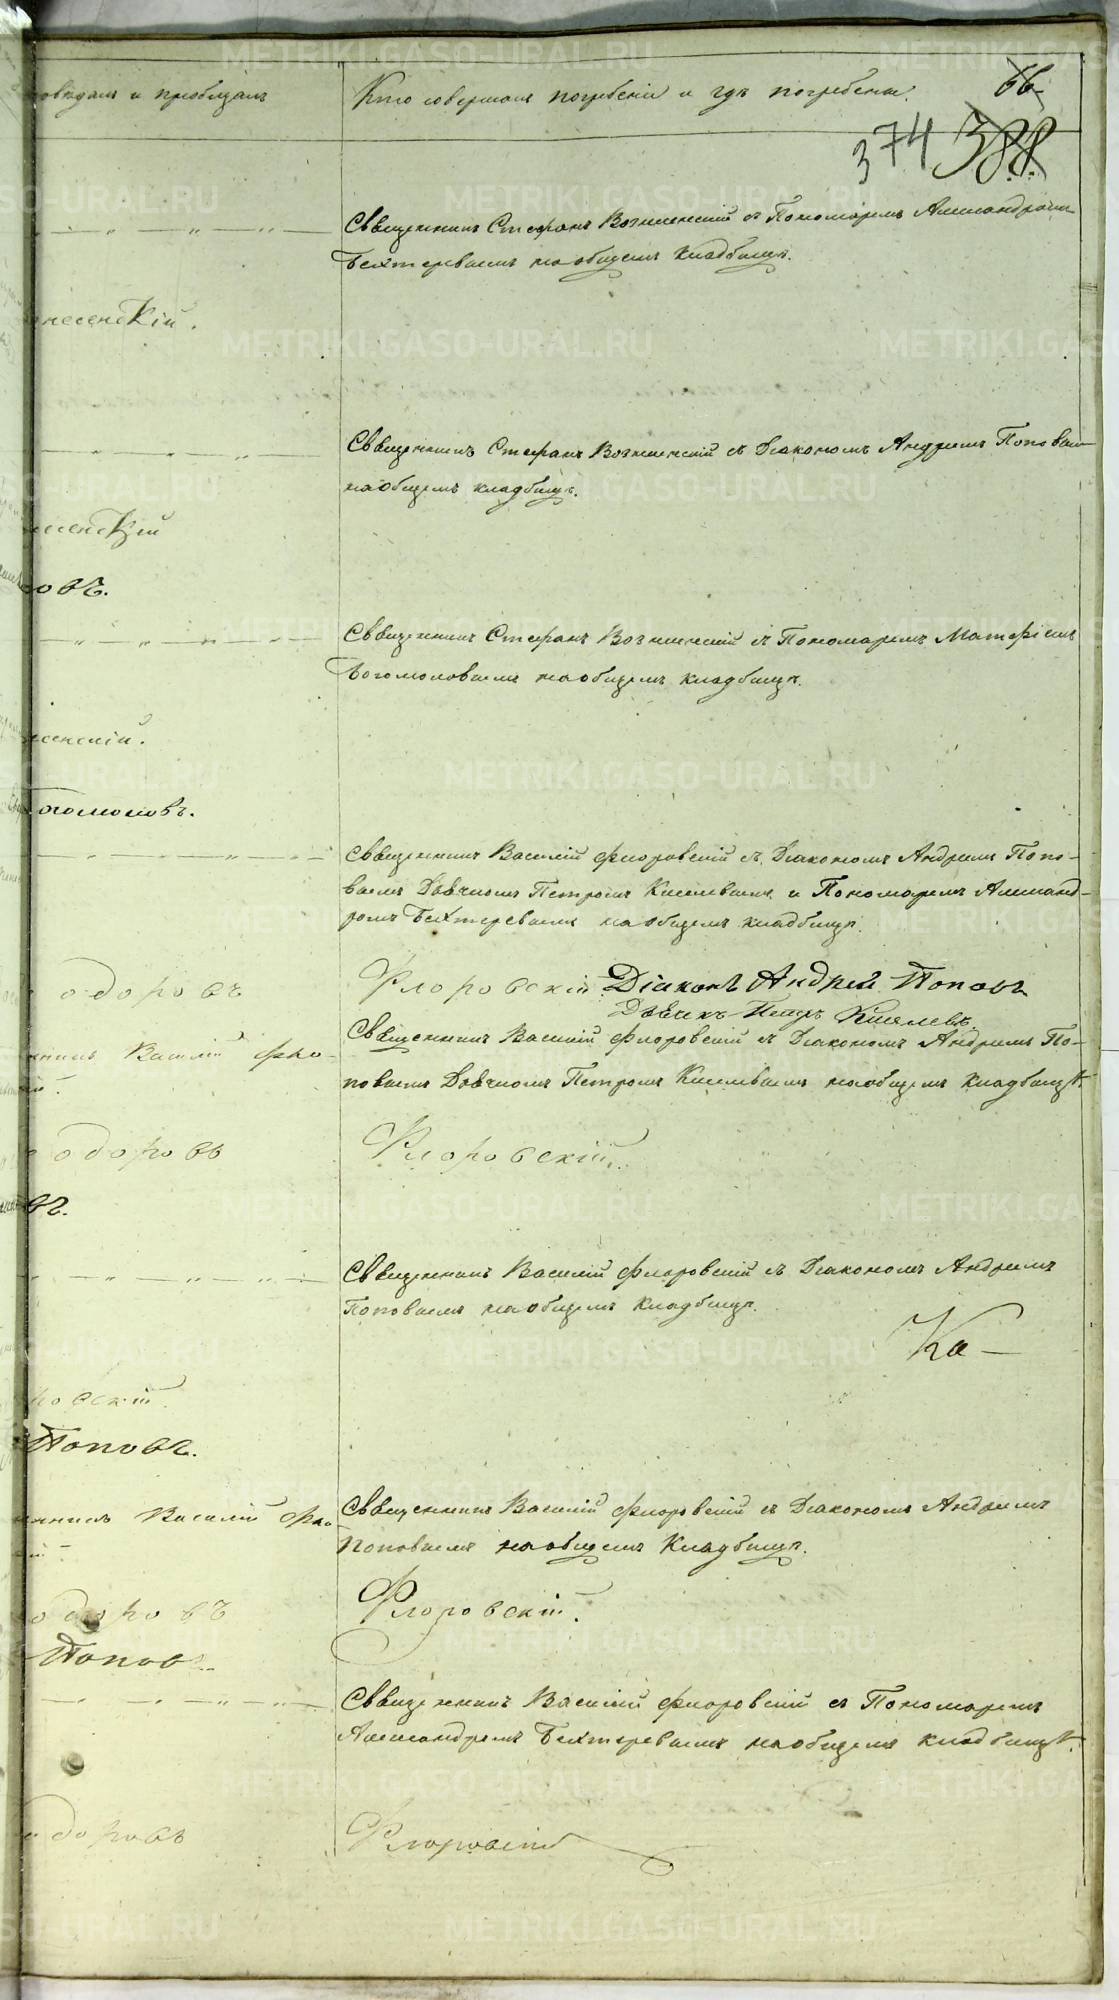 овѣдалъ и пріобщалъ
Кто совершалъ погребеніе и гдѣ погребены.
66
374 388
Священникъ Стефанъ Вознесенскій съ Пономаремъ Александромъ
Бехтеревымъ на общемъ кладбищѣ.
несенскій.
Священникъ Стефанъ Вознесенскій съ Діакономъ Андреемъ Поповымъ
на общемъ кладбищѣ.
несенскій
овъ.
Священникъ Стефанъ Вознесенскій съ Пономаремъ Матфіемъ
Богомоловымъ на общемъ кладбищѣ.
есенскій.
огомоловъ.
Священникъ Василій Флоровскій съ Діакономъ Андреемъ Попо-
вымъ Дьячкомъ Петромъ Киселевымъ и Пономаремъ Александ-
ромъ Бехтеревымъ на общемъ кладбищѣ.
одоровъ
Флоровскій Діаконъ Андрей Поповъ
Дьячекъ Петръ Киселевъ.
нникъ Василій Фло-
Священникъ Василій Флоровскій съ Діакономъ Андреемъ По-
повымъ Дьячкомъ Петромъ Киселевымъ на общемъ кладбищѣ.
одоровъ
Флоровскій.
въ.
Священникъ Василій Флоровскій съ Діакономъ Андреемъ
Поповымъ на общемъ кладбищѣ.
Ка-
ровскій.
Поповъ.
енникъ Василій Фло-
Священникъ Василій Флоровскій съ Діакономъ Андреемъ
Поповымъ на общемъ Кладбищѣ.
одоровъ
Флоровскій.
Поповъ.
Священникъ Василій Флоровскій съ Пономаремъ
Александромъ Бехтеревымъ на общемъ кладбищѣ.
одоровъ
Флоровскій
METRIKI.GASO-URAL.RU